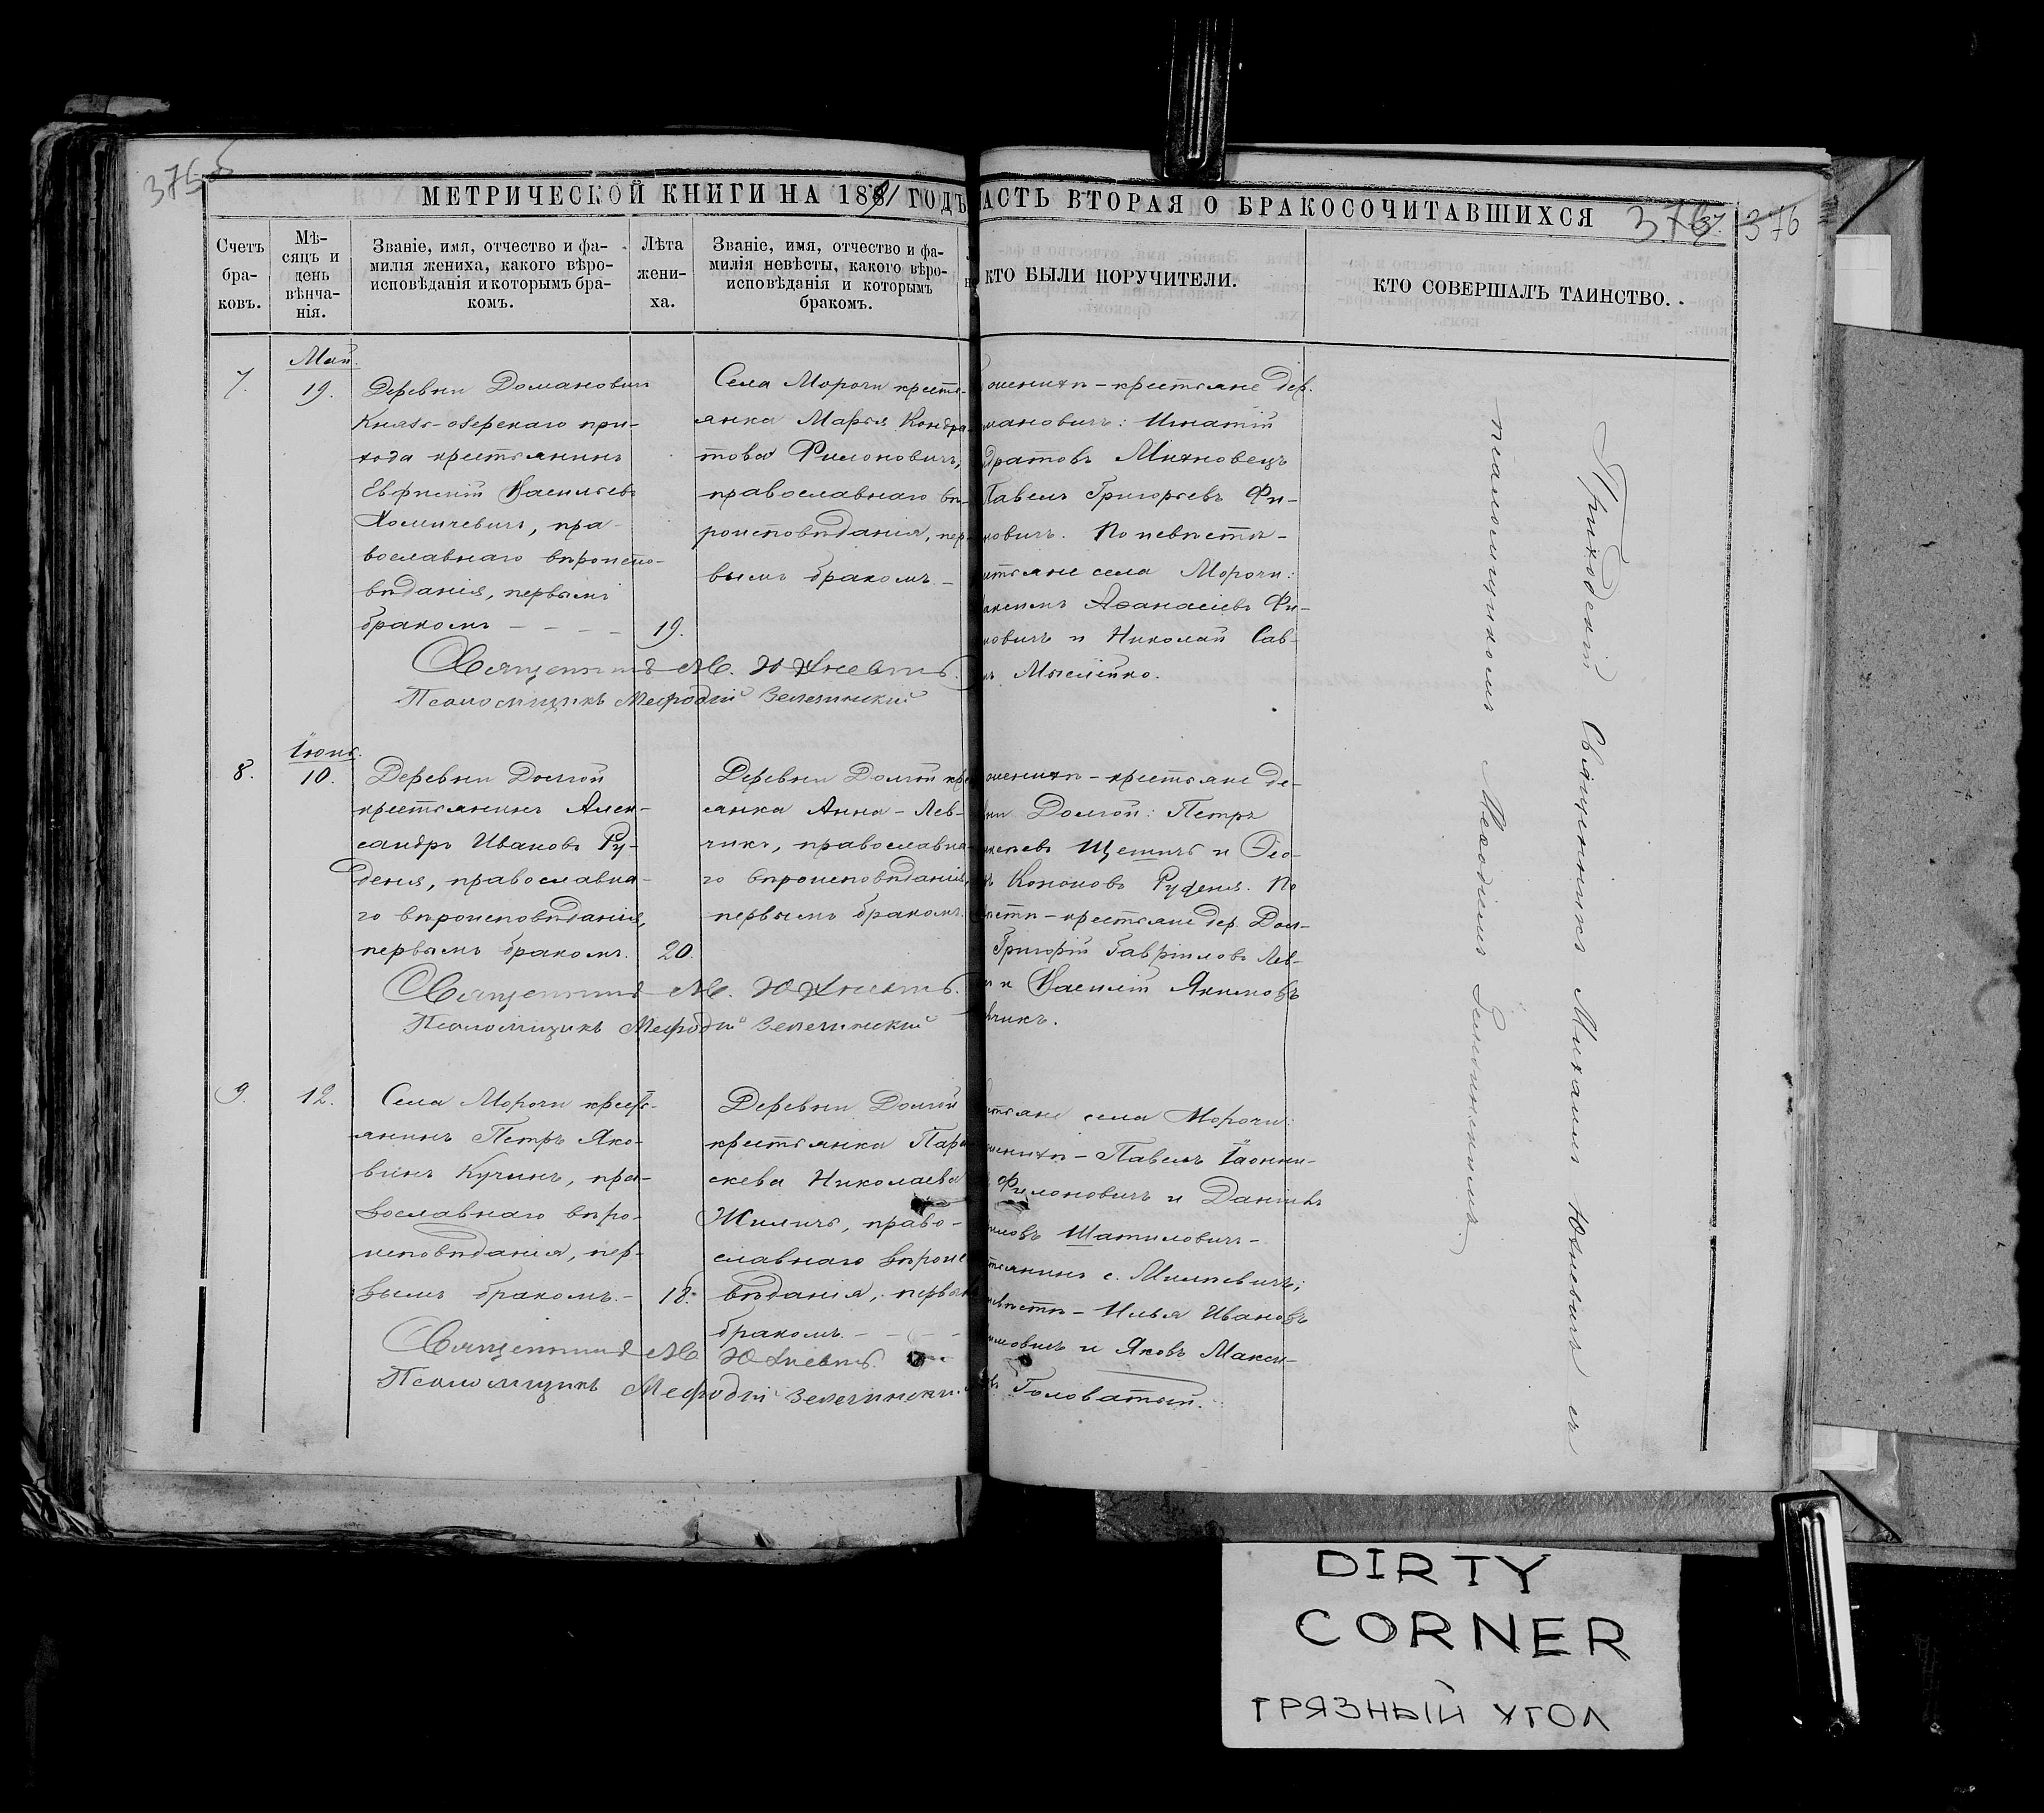 375об
МЕТРИЧЕСКОЙ КНИГИ НА 1881 ГОДЪ
АСТЬ ВТОРАЯ О БРАКОСОЧИТАВШИХСЯ
376
37.
376
Счетъ бра-
ковъ.
Мѣ-
сяцъ и
день
вѣнча-
нія.
Званіе, имя, отчество и фа-
милія жениха, какого вѣро-
исповѣданія и которымъ бра-
комъ.
Лѣта
жени-
ха.
Званіе, имя, отчество и фа-
милія невѣсты, какого вѣро-
исповѣданія и которымъ
бракомъ.
КТО БЫЛИ ПОРУЧИТЕЛИ.
КТО СОВЕРШАЛЪ ТАИНСТВО.
7.
Май.
19.
Деревни Домановичъ
Князь-озерскаго при-
хода крестьянинъ
Евфисій Васильевъ
Хомичевичъ, пра-
вославнаго вѣроиспо-
вѣданія, первымъ
бракомъ - - - -
19.
Села Морочи кресть-
янка Марья Кондра-
това Филоновичъ,
православнаго вѣ-
роисповѣданія, пер-
вымъ бракомъ. -
оженихѣ - крестьяне дер.
мановичъ: Игнатій
дратовъ Михновецъ
Павелъ Григорьевъ Фи-
новичъ. По невѣстѣ -
стьяне села Морочи:
аксимъ Аѳанасіевъ Фи-
новичъ и Николай Сав-
Мыслейко.
Священникъ М. Юхневичъ.
Псаломщикъ Мефодій Зеленинскій
8.
Іюнь.
10.
Деревни Долгой
крестьянинъ Алек-
сандръ Ивановъ Ру-
деня, православна-
го вѣроисповѣданія,
первымъ бракомъ.
20.
Деревни Долгой кре
янка Анна - Лев-
чикъ, православна-
го вѣроисповѣданія,
первымъ бракомъ.
оженихѣ - крестьяне де-
ни Долгой: Петръ
Щешичъ и Ѳео-
Кононовъ Руденя. По
ѣстѣ - крестьяне дер. Дол-
Григорій Гавріиловъ Лев-
и Василій Якимовъ
вчикъ.
Священникъ М. Юхневичъ.
Псаломщикъ Мефодій Зеленинскій
9.
12.
Села Морочи кресть-
янинъ Петръ Яко-
влевъ Кучинъ, пра-
вославнаго вѣро-
исповѣданія, пер-
вымъ бракомъ. -
18.
Деревни Долгой
крестьянка Пара
скева Николаева
Жиличъ, право-
славнаго вѣроис
вѣданія, первым
бракомъ. - - -
стьяне села Морочи:
женихѣ - Павелъ Іоанни-
Филоновичъ и Даніилъ
иловъ Шатиловичъ -
стьянинъ с. Милевичъ;
невѣстѣ - Илья Ивановъ
имовичъ и Яковъ Макси-
Головатый.
Священникъ М. Юхневичъ.
Псаломщикъ Мефодій Зеленинскій
Приходскій Священникъ Михаилъ Юхневичъ съ
псаломщикомъ Меѳодіемъ Зеленинскимъ.
DIRTY
CORNER
ГРЯЗНЫЙ УГОЛ